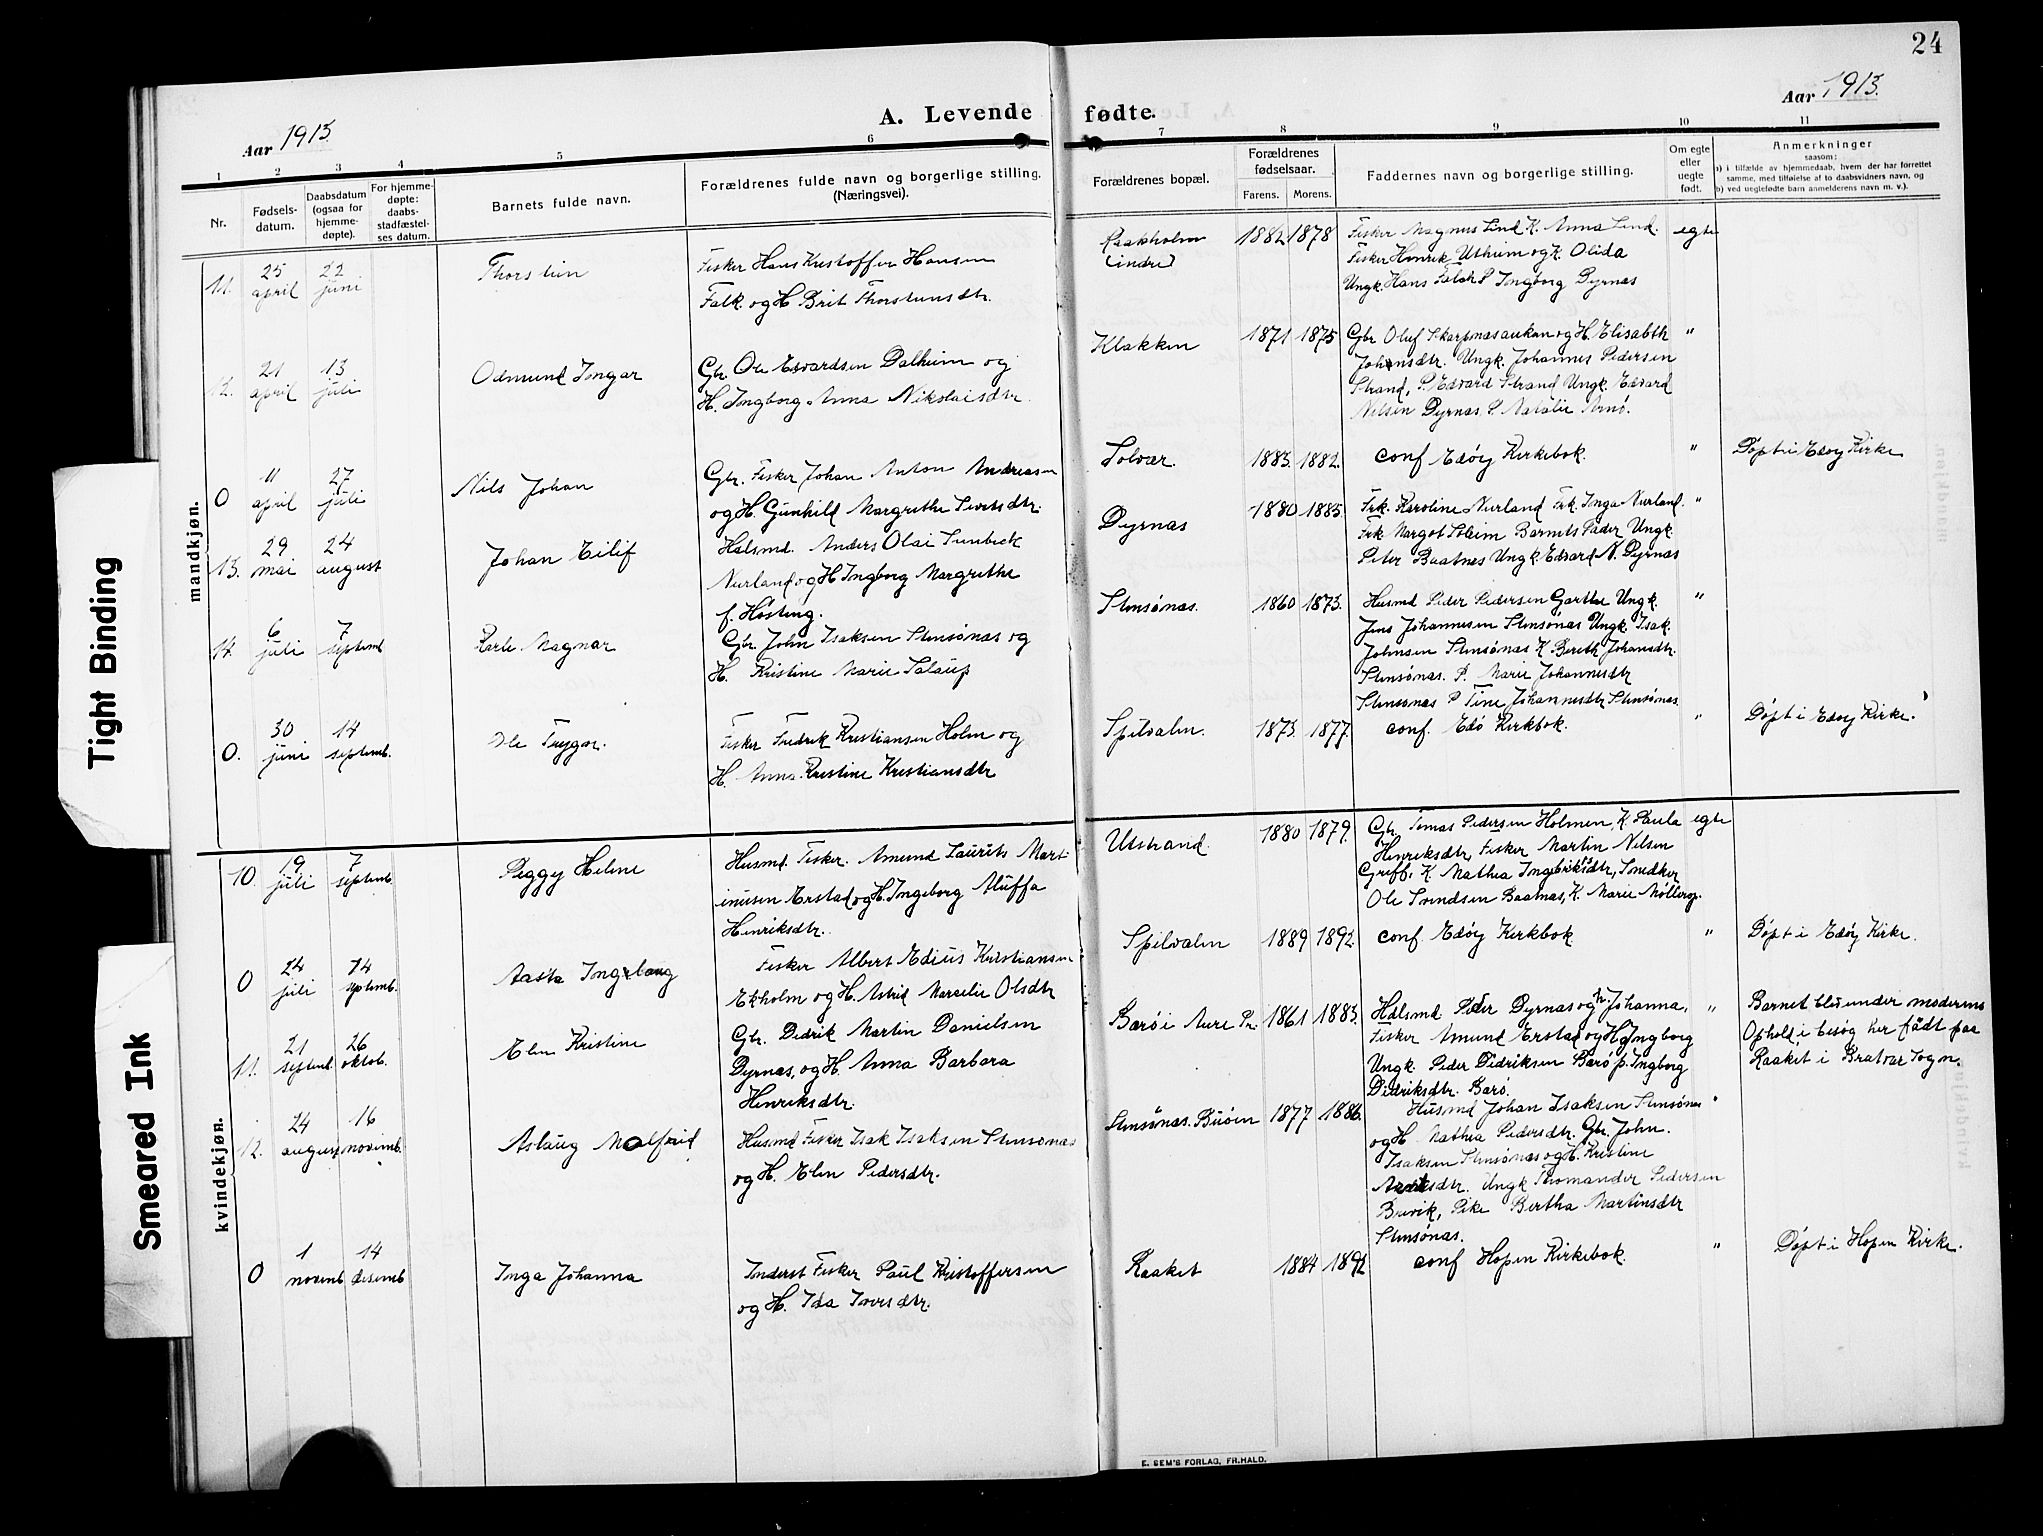 24
Aar 1913.
A. Levende fødte.
Aar 1913.
1 2 3 4 5 6 7 8 9 10 11
Nr.
Fødsels-
datum.
Daabsdatum
(ogsaa for
hjemme-
døpte).
For hjemme-
døpte:
daabs-
stadfæstel-
ses datum.
Barnets fulde navn.
Forældrenes fulde navn og borgerlige stilling.
(Næringsvei).
Forældrenes bopæl.
Forældrenes
fødselsaar.
Farens. Morens.
Faddernes navn og borgerlige stilling.
Om egte
eller
uegte
født.
Anmerkninger
saasom:
a) i tilfælde av hjemmedaab, hvem der har forrettet
samme, med tilføielse af to daabsvidners navn, og
b) ved uegtefødte barn anmelderens navn m. v.).
mandkjøn.
11. 25 april 22 juni
Thorstein
Fisker Hans Kristoffer Hansen
Falk og H. Brit Thorsteinsdtr.
Raakholm
(indre)
1882 1878
Fisker Magnus Lind K. Anna Lind.
Fisker Henrik Utheim og K. Olida
Ungk. Hans Falck P. Ingborg Dyrnæs
egte
12. 21 april 13 juli
Odmund Ingar
Gbr. Ole Edvardsen Dalheim og
H. Ingborg Anna Nikolaisdtr.
Klakken
1871 1875
Gbr Oluf Skarpnæsaukan og H. Elisabth
Johansdtr. Ungk. Johannes Pedersen
Strand, P. Edvard Strand Ungk. Edvard
Nilsen Dyrnæs, P. Natalie Arnø.
"
0 11 april 27 juli
Nils Johan
Gbr. Fisker Johan Anton Andreasen
og H. Gunhild Margrethe Sivertsdtr.
Solvær.
1883. 1882.
conf Edøy Kirkebok.
"
Døpt i Edøy Kirke
13. 29 mai 24 august
Johan Eilif
Halsmd. Anders Olai
Nerland og H Ingborg Margrethe
f. Høsting.
Dyrnæs
1880 1885.
Frk. Karoline Nerland Frk. Inga Nerland.
Frk Margot Steim Barnets Fader Ungk.
Peter Baatnes Ungk. Edvard N. Dyrnæs
"
14. 6 juli 7 septemb
Karle Magnar
Gbr. John Isaksen Stensønæs og
H. Kristine Marie
Stensønæs.
1860 1873.
Husmd Peder Pedersen Ungk.
Jens Johannesen Stensønæs Ungk. Isak
Johnsen Stensønæs K. Bereth Johansdtr.
Stensønæs. P. Marie Johannesdtr
Stensønæs P Tine Johannesdtr Stensønæs.
"
0. 30 juni 14 septemb.
Ole Trygar.
Fisker Fredrik Kristiansen Holm og
H. Anna Kristine Kristiansdtr
Spilvalen.
1873. 1877.
conf. Edø Kirkbok.
"
Døpt i Edøy Kirke.
kvindekjøn.
10. 19 juli 7 septemb.
Peggy Helene
Husmd. Fisker. Amund Laurits Mart-
inusen Erstad og H. Ingeborg Aluffa
Henriksdtr.
Utstrand.
1880 1879.
Gbr. Tomas Pedersen Holmen, K. Paula
Henriksdtr, Fisker Martin Nilsen
Griff, K. Mathea Ingebriktsdtr, Snedker
Ole Svendsen Baatnæs, K. Marie Møllerop.
egte
0 24 juli 14 septemb.
Aasta Ingeborg
Fisker Albert Edius Kristiansen
Ekholm og H. Astrid Marselie Olsdtr
Spilvalen
1889 1892.
conf Edøy Kirkbok
"
Døpt i Edøy Kirke.
11. 21 septemb 26 oktob.
Elen Kristine
Gbr. Didrik Martin Danielsen
Dyrnæs, og H. Anna Barbara
Henriksdtr.
Barø i Aure Pr.
1861 1883.
Halsmd Peder Dyrnæs og H. Johanna,
Fisker Amund Erstad og H. Ingborg
Ungk. Peder Didriksen Barø p. Ingborg
Didriksdtr. Barø.
"
Barnet blev under moderens
Ophold i besøg her født paa
Raaket i Bratvær Sogn.
12. 24 august 16 novemb.
Aslaug Malfrid
Husmd Fisker Isak Isaksen Stensønæs
og H. Elen Pedersdtr.
Stensønæs. Buøien
1877 1886.
Husmd Johan Isaksen Stensønæs
og H. Mathea Pedersdtr. Gbr. John.
Isaksen Stensønæs og H. Kristine
Ungk Thomander Pedersen
Brevik, Pike Bertha Martinsdtr
Stensønæs.
"
0 1 novemb 14 desemb
Inga Johanna
Inderst Fisker Paul Kristoffersen
og H. Ida Iversdtr.
Raaket
1884 1892
conf Hopen Kirkebok.
"
Døpt i Hopen Kirke.
E. SEM'S FORLAG, FR.HALD.
Tight Binding
Smeared Ink